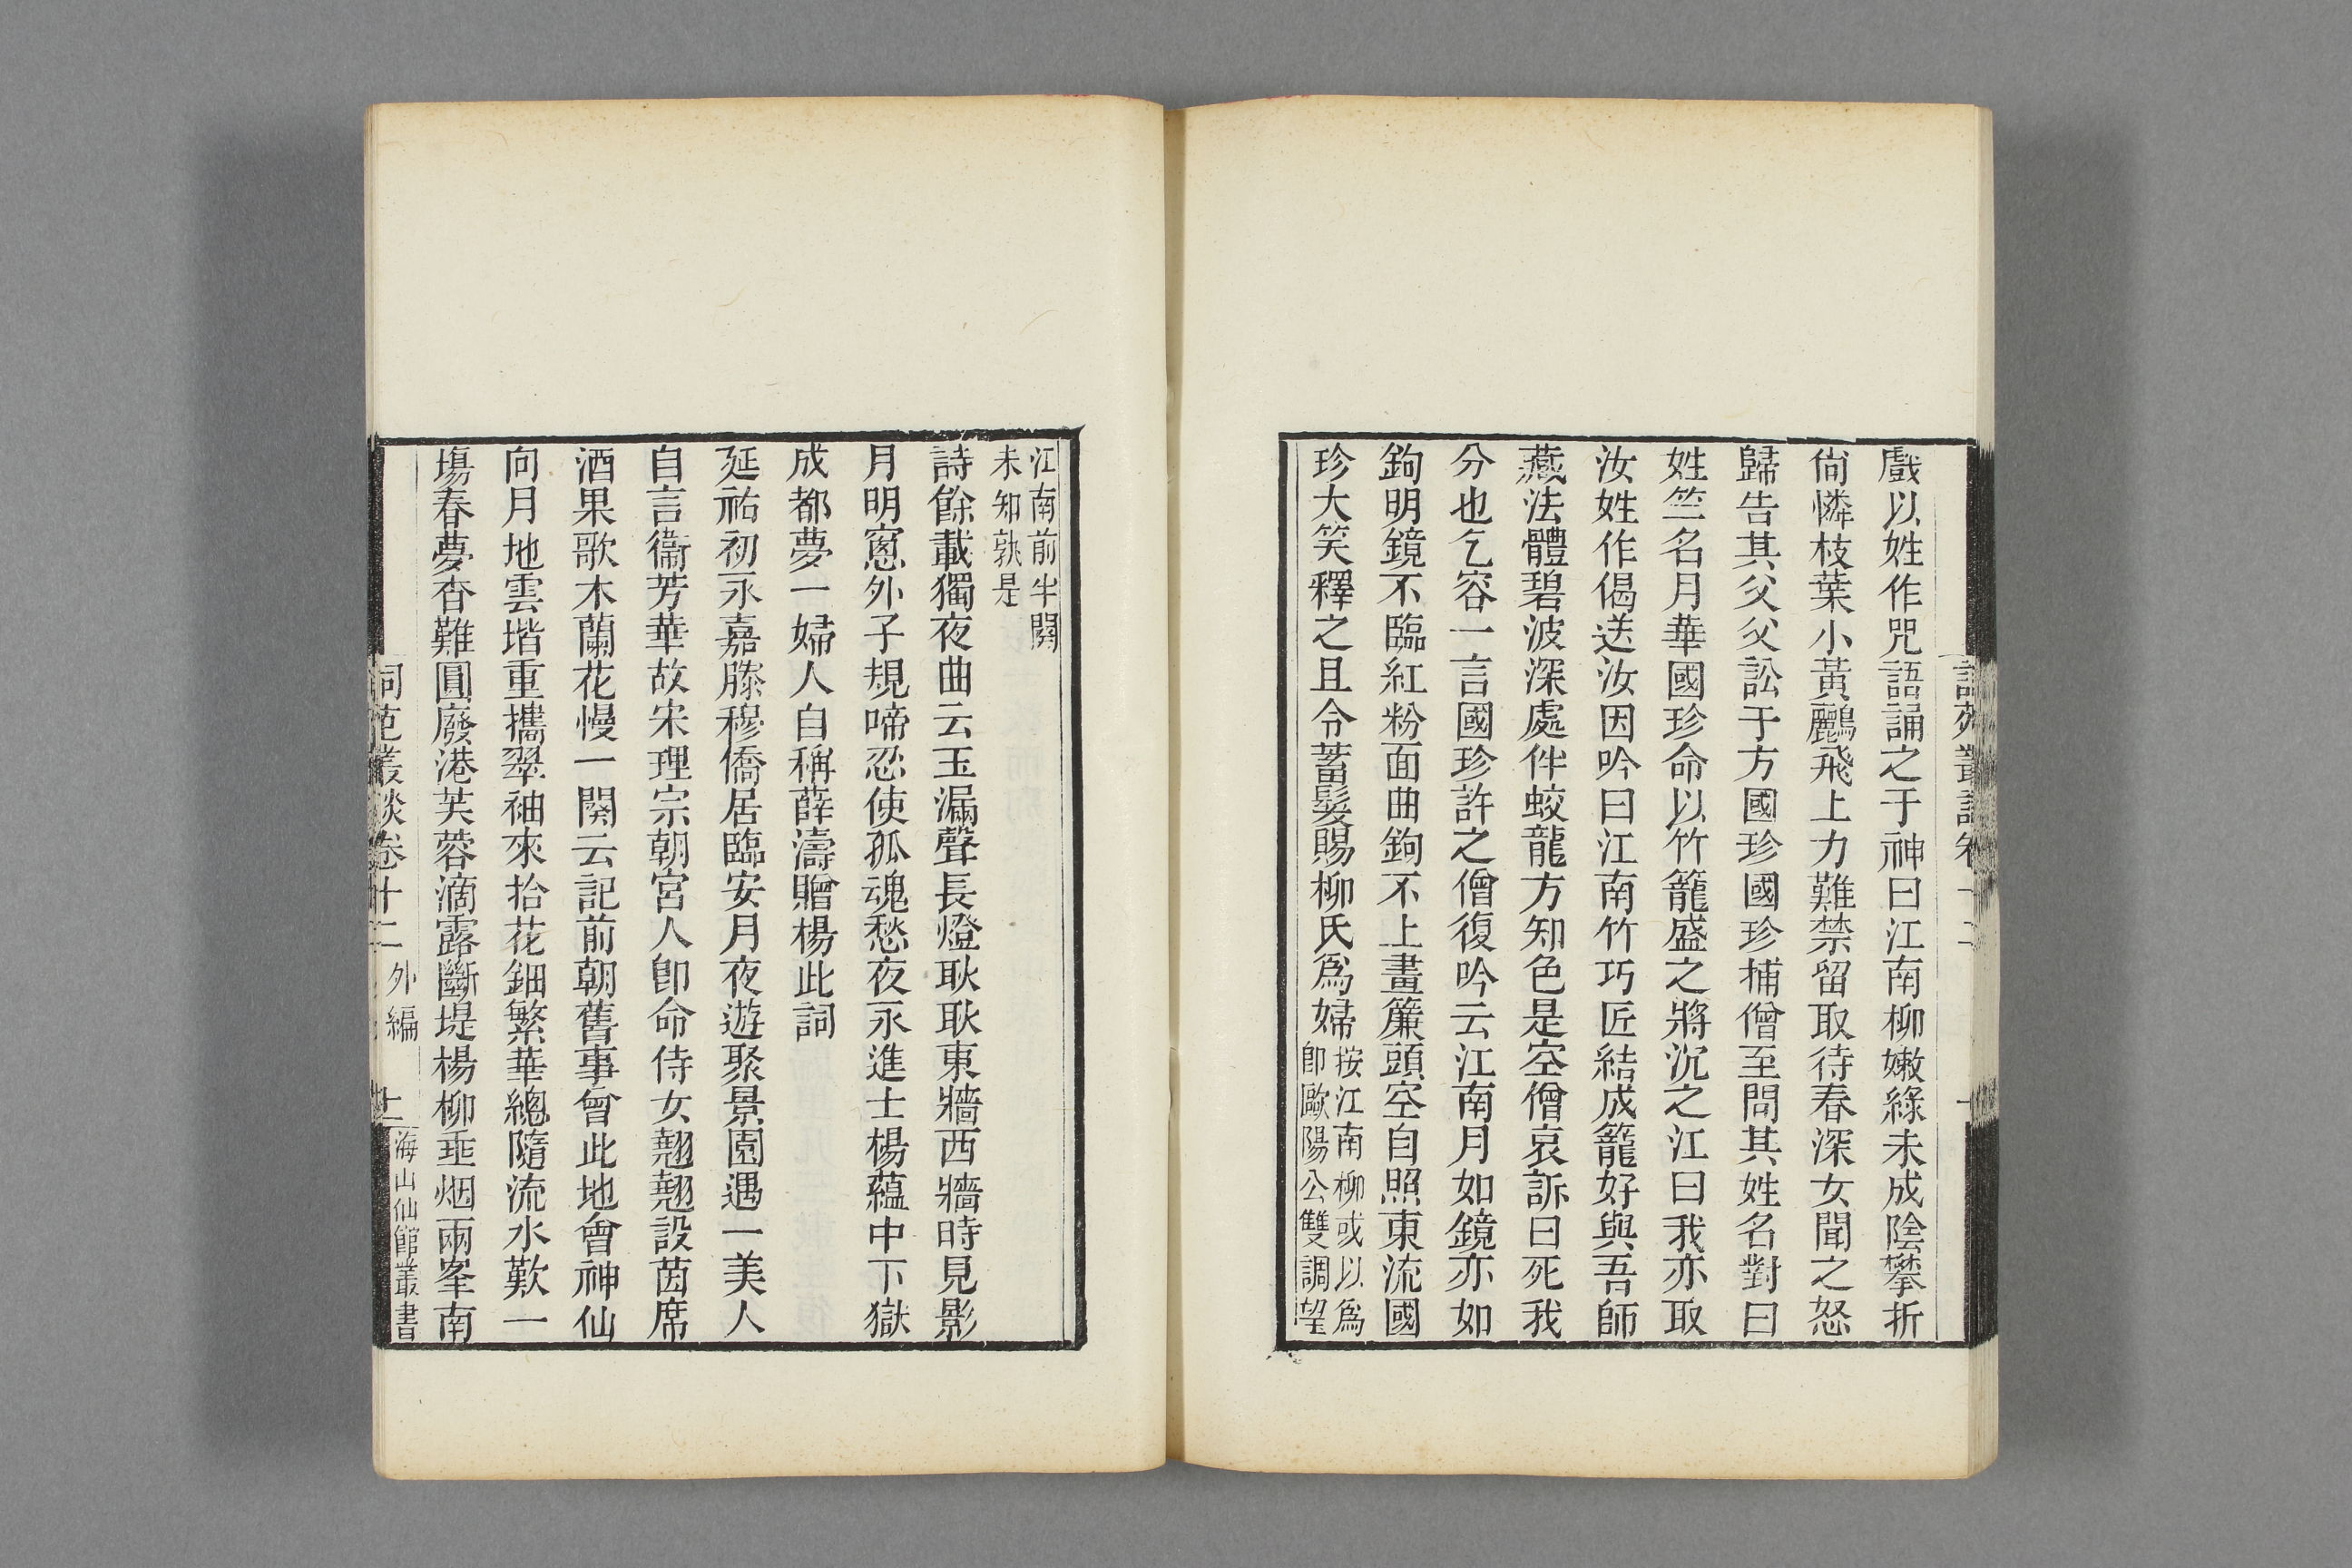 戲以姓作咒語誦之于神曰江南柳嫩綠未成陰攀折
尙憐枝葉小黃鸝飛上力難禁留取待春深女聞之怒
歸告其父父訟于方國珍國珍捕僧至問其姓名對曰
姓竺名月華國珍命以竹籠盛之將沉之江曰我亦取
汝姓作偈送汝因吟曰江南竹巧匠結成籠好與吾師
藏法體碧波深處伴蛟龍方知色是空僧哀訴曰死我
分也乞容一言國珍許之僧復吟云江南月如鏡亦如
鉤明鏡不臨紅粉面曲鉤不上畫簾頭空自照東流國
珍大笑釋之且令蓄髮賜柳氏爲婦
按江南柳或以爲
卽歐陽公雙調望
江南前半闋
未知孰是
詩餘載獨夜曲云玉漏聲長燈耿耿東牆西牆時見影
月明窻外子規啼忍使孤魂愁夜永進士楊蘊中下獄
成都夢一婦人自稱薛濤贈楊此詞
延祐初永嘉滕穆僑居臨安月夜遊聚景園遇一美人
自言衞芳華故宋理宗朝宮人卽命侍女翹翹設茵席
酒果歌木蘭花慢一闋云記前朝舊事曾此地會神仙
向月地雲堦重攜翠袖來拾花鈿繁華總隨流水歎一
塲春夢杳難圓廢港芙蓉滴露斷堤楊柳垂烟兩峯南
詞苑叢談卷十二 外編
海山仙館叢書